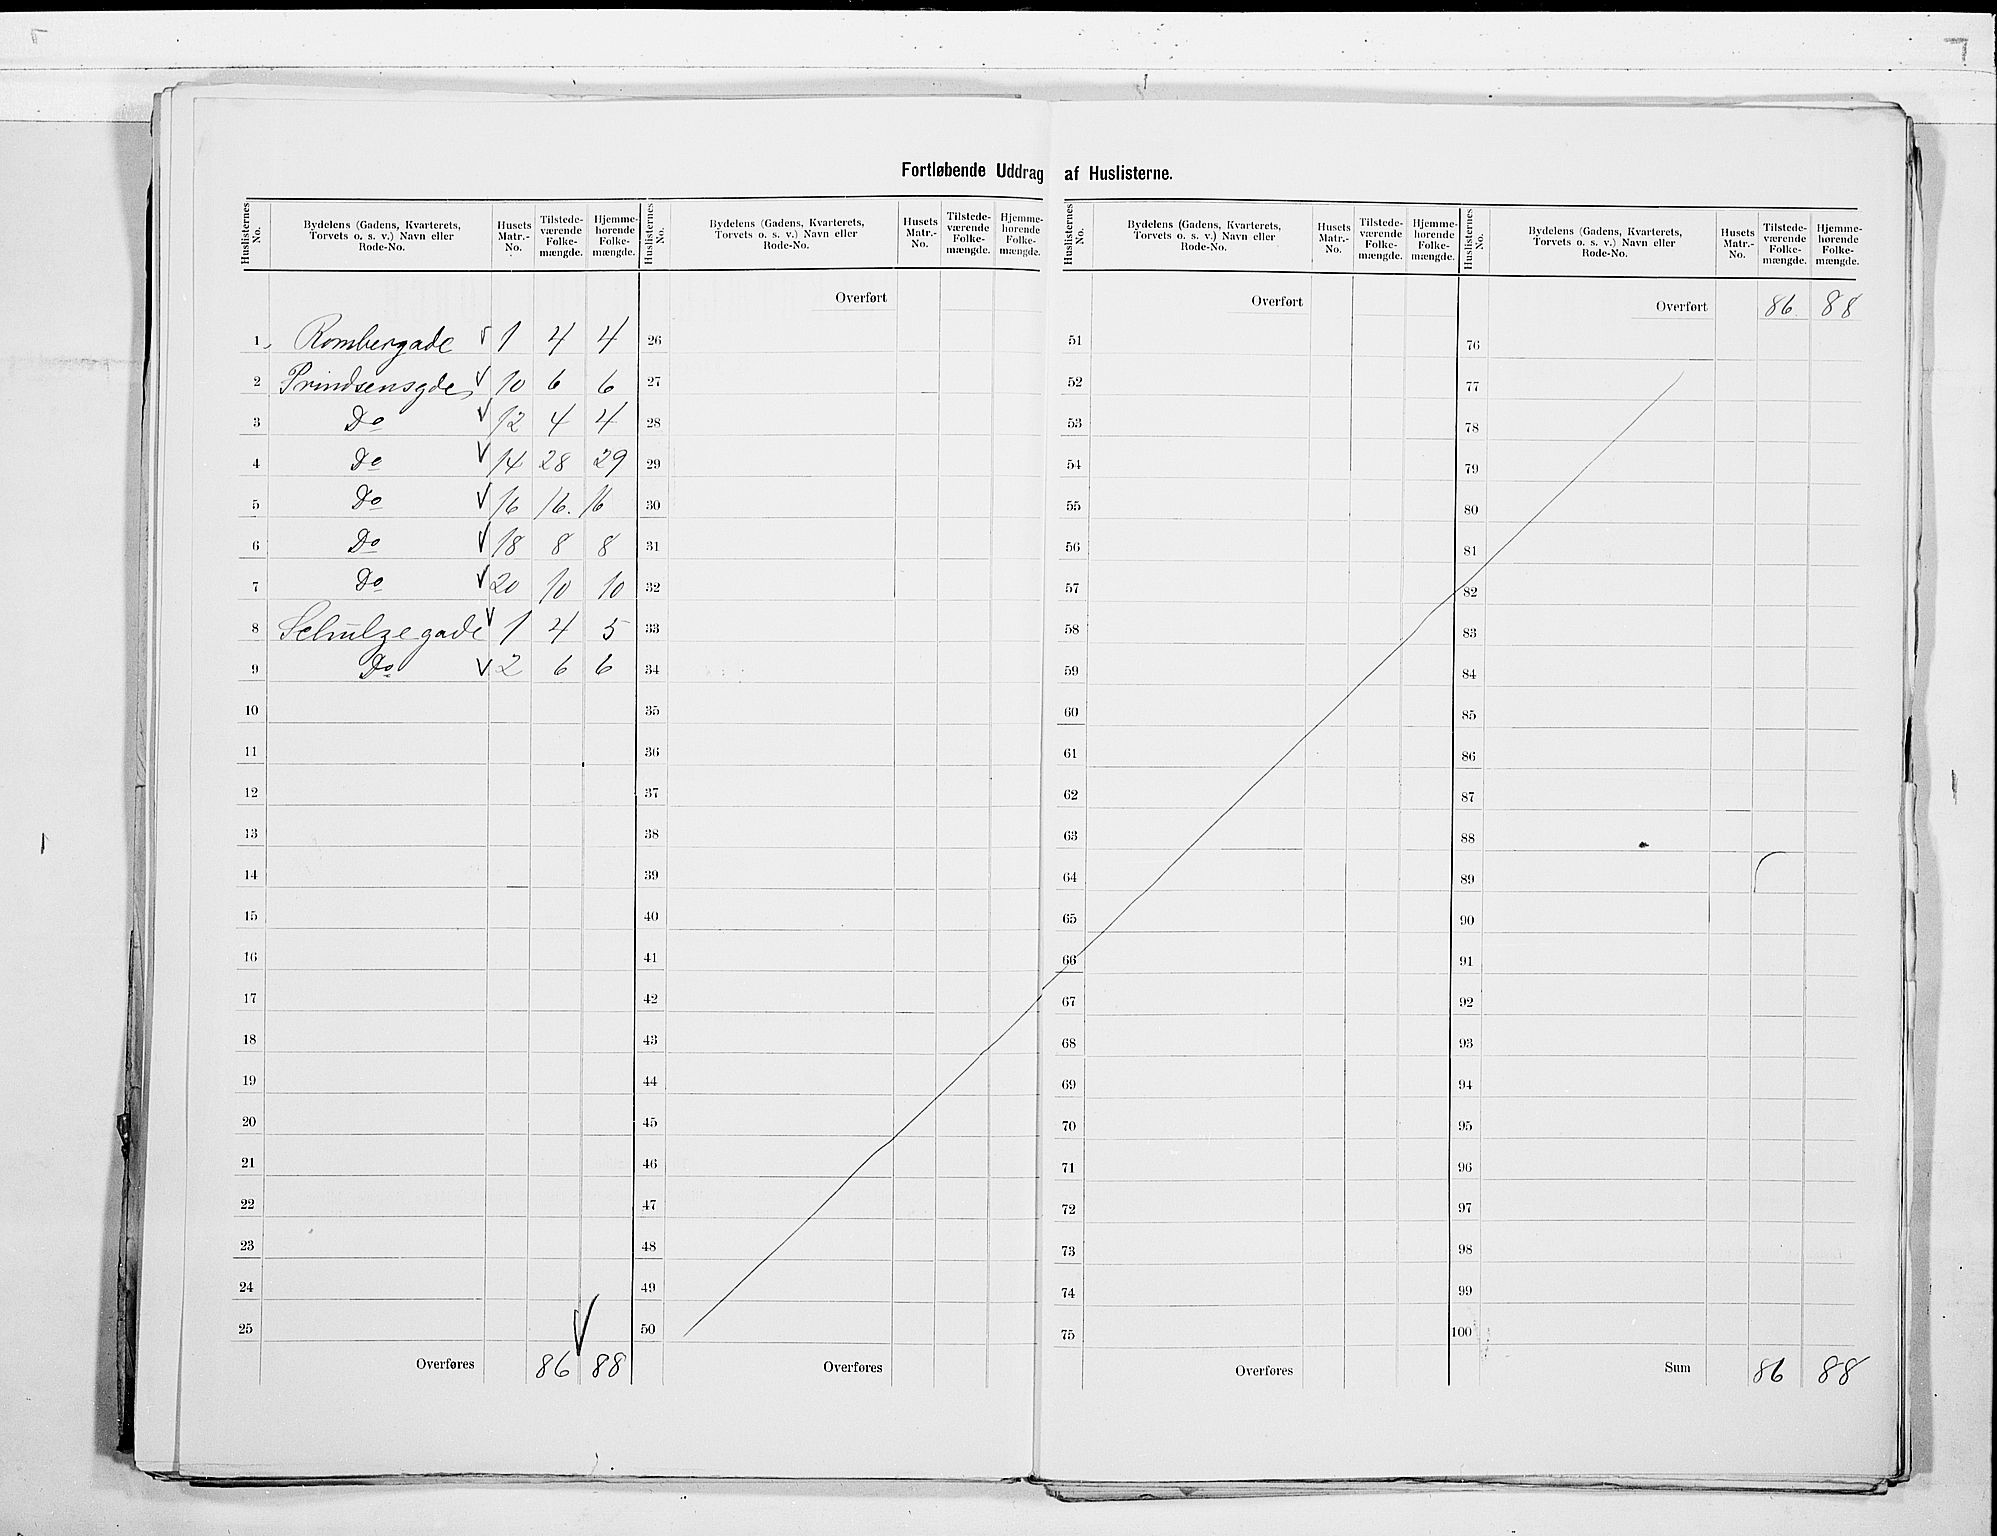 Fortløbende Uddrag af Huslisterne.
Huslisternes No. Bydelens (Gadens, Kvarterets, Torvets o. s. v.) Navn eller Rode-No. Husets Matr.-No. Tilstede-værende Folke-mængde. Hjemme-hørende Folke-mængde.
1 Rombergade 1 4 4
2 Prindsensgde 10 6 6
3 Do 12 4 4
4 Do 14 28 29
5 Do 16 16. 16
6 Do 18 8 8
7 Do 20 10 10
8 Schulzegade 1 4 5
9 Do 2 6 6
10
11
12
13
14
15
16
17
18
19
20
21
22
23
24
25
Overføres 86 88
Huslisternes No. Bydelens (Gadens, Kvarterets, Torvets o. s. v.) Navn eller Rode-No. Husets Matr.-No. Tilstede-værende Folke-mængde. Hjemme-hørende Folke-mængde.
Overført
26
27
28
29
30
31
32
33
34
35
36
37
38
39
40
41
42
43
44
45
46
47
48
49
50
Overføres
Huslisternes No. Bydelens (Gadens, Kvarterets, Torvets o. s. v.) Navn eller Rode-No. Husets Matr.-No. Tilstede-værende Folke-mængde. Hjemme-hørende Folke-mængde.
Overført
51
52
53
54
55
56
57
58
59
60
61
62
63
64
65
66
67
68
69
70
71
72
73
74
75
Overføres
Huslisternes No. Bydelens (Gadens, Kvarterets, Torvets o. s. v.) Navn eller Rode-No. Husets Matr.-No. Tilstede-værende Folke-mængde. Hjemme-hørende Folke-mængde.
Overført 86. 88
76
77
78
79
80
81
82
83
84
85
86
87
88
89
90
91
92
93
94
95
96
97
98
99
100
Sum 86 88